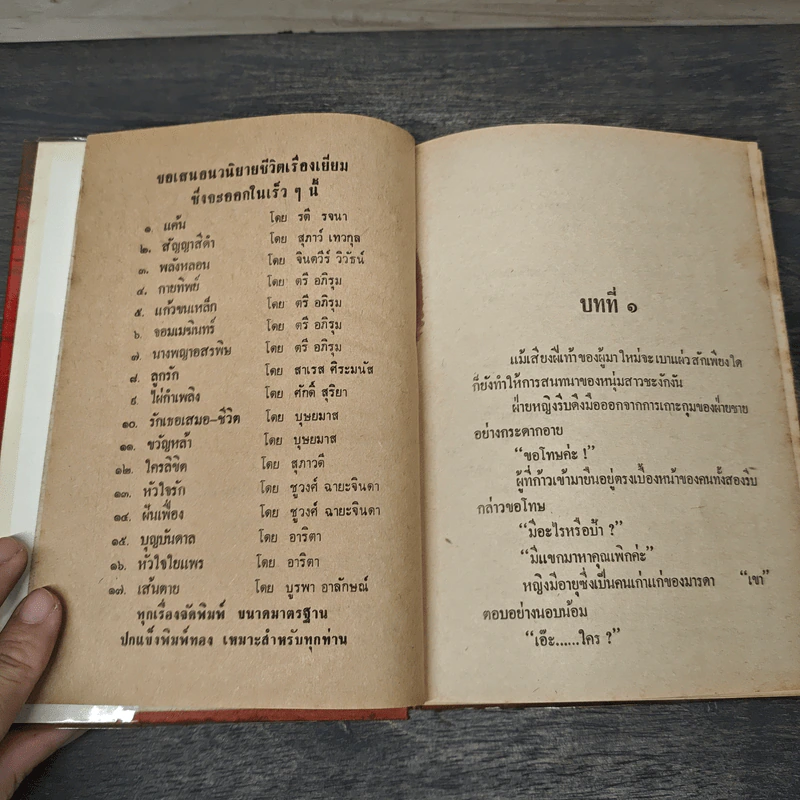 ขอเสนอนวนิยายชีวิตเรื่องเยี่ยม
ซึ่งจะออกในเร็ว ๆ นี้
๑. แค้น โดย รตี รจนา
๒. สัญญาสีดำ โดย สุภาว์ เทวกุล
๓. พลังหลอน โดย จินตวีร์ วิวัธน์
๔. กายทิพย์ โดย ตรี อภิรุม
๕. แก้วขนเหล็ก โดย ตรี อภิรุม
๖. จอมเมฆินทร์ โดย ตรี อภิรุม
๗. นางพญาอสรพิษ โดย ตรี อภิรุม
๘. ลูกรัก โดย สาเรส ศิระมนัส
๙. ไผ่กำเพลิง โดย ศักดิ์ สุริยา
๑๐. รักเธอเสมอ-ชีวิต โดย บุษยมาส
๑๑. ขวัญหล้า โดย บุษยมาส
๑๒. ใครลิขิต โดย สุภาวดี
๑๓. หัวใจรัก โดย ชูวงศ์ ฉายะจินดา
๑๔. ฝันเฟื่อง โดย ชูวงศ์ ฉายะจินดา
๑๕. บุญบันดาล โดย อาริตา
๑๖. หัวใจใยแพร โดย อาริตา
๑๗. เส้นตาย โดย บูรพา อาลักษณ์
ทุกเรื่องจัดพิมพ์ ขนาดมาตรฐาน
ปกแข็งพิมพ์ทอง เหมาะสำหรับทุกท่าน
บทที่ ๑
แม้เสียงฝีเท้าของผู้มาใหม่จะเบาแผ่วสักเพียงใด
ก็ยังทำให้การสนทนาของหนุ่มสาวชะงักงัน
ฝ่ายหญิงรีบดึงมือออกจากการเกาะกุมของฝ่ายชาย
อย่างกระดากอาย
“ขอโทษค่ะ !”
ผู้ที่ก้าวเข้ามายืนอยู่ตรงเบื้องหน้าของคนทั้งสองรีบ
กล่าวขอโทษ
“มีอะไรหรือป้า ?”
“มีแขกมาหาคุณเพิกค่ะ”
หญิงมีอายุซึ่งเป็นคนเก่าแก่ของมารดา “เขา”
ตอบอย่างนอบน้อม
“เอ๊ะ......ใคร ?”